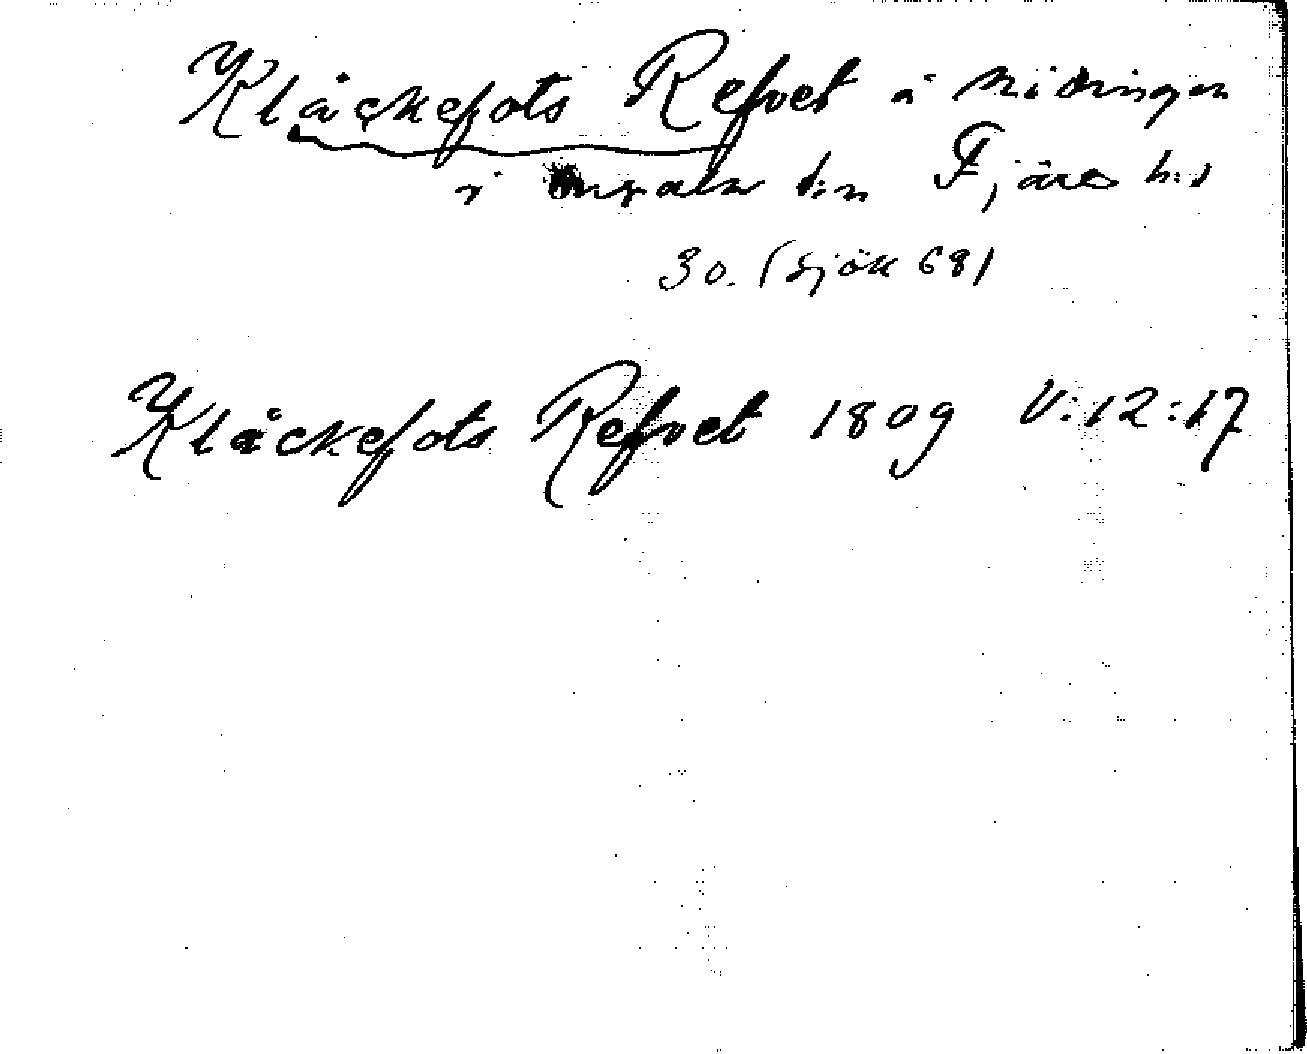 Klåckefots Refvet å Nidingen
i Onsala s:n Fjäre h:d
30. (Sjök 68)
Klåckefots Refvet 1809 V:12:17